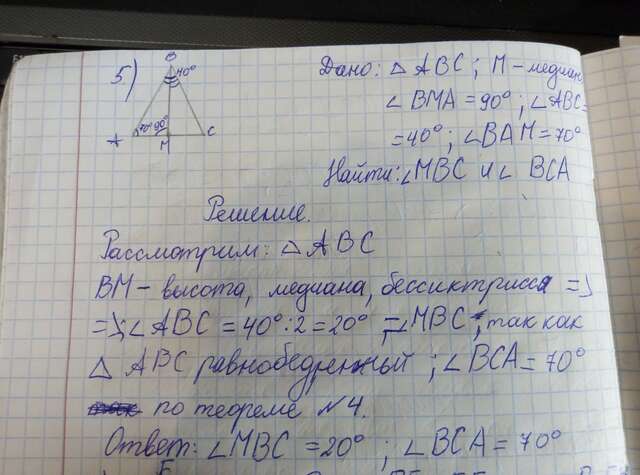 5)
B
40°
70° 90°
A
M
C
Дано: △ ABC; M – медиан
∠ BMA = 90°; ∠ABC=
= 40°; ∠BAM = 70°
Найти: ∠MBC и ∠ BCA
Решение.
Рассмотрим: △ ABC
BM – высота, медиана, бессиктрисса =>
=> ∠ABC = 40°:2 = 20° = ∠MBC, так как
△ ABC равнобедренный; ∠BCA = 70°
по теореме №4.
Ответ: ∠MBC = 20° ; ∠BCA = 70°